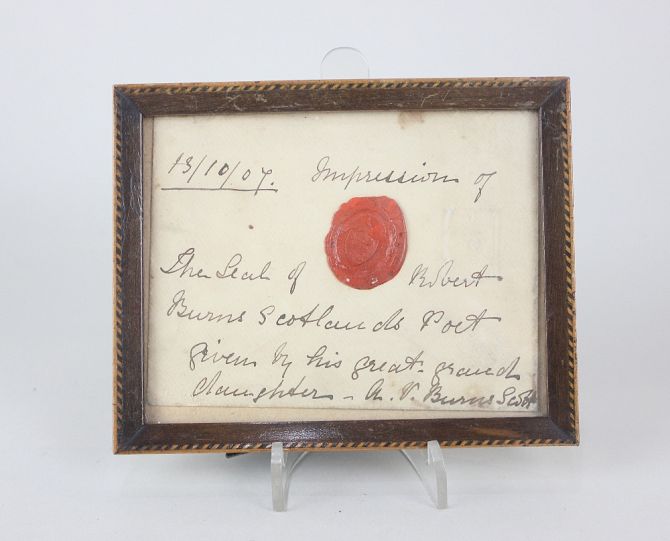 13/10/07. Impression of
The Seal of Robert
Burns Scotlands Poet
given by his great-grand
daughter - A. V. Burns Scott